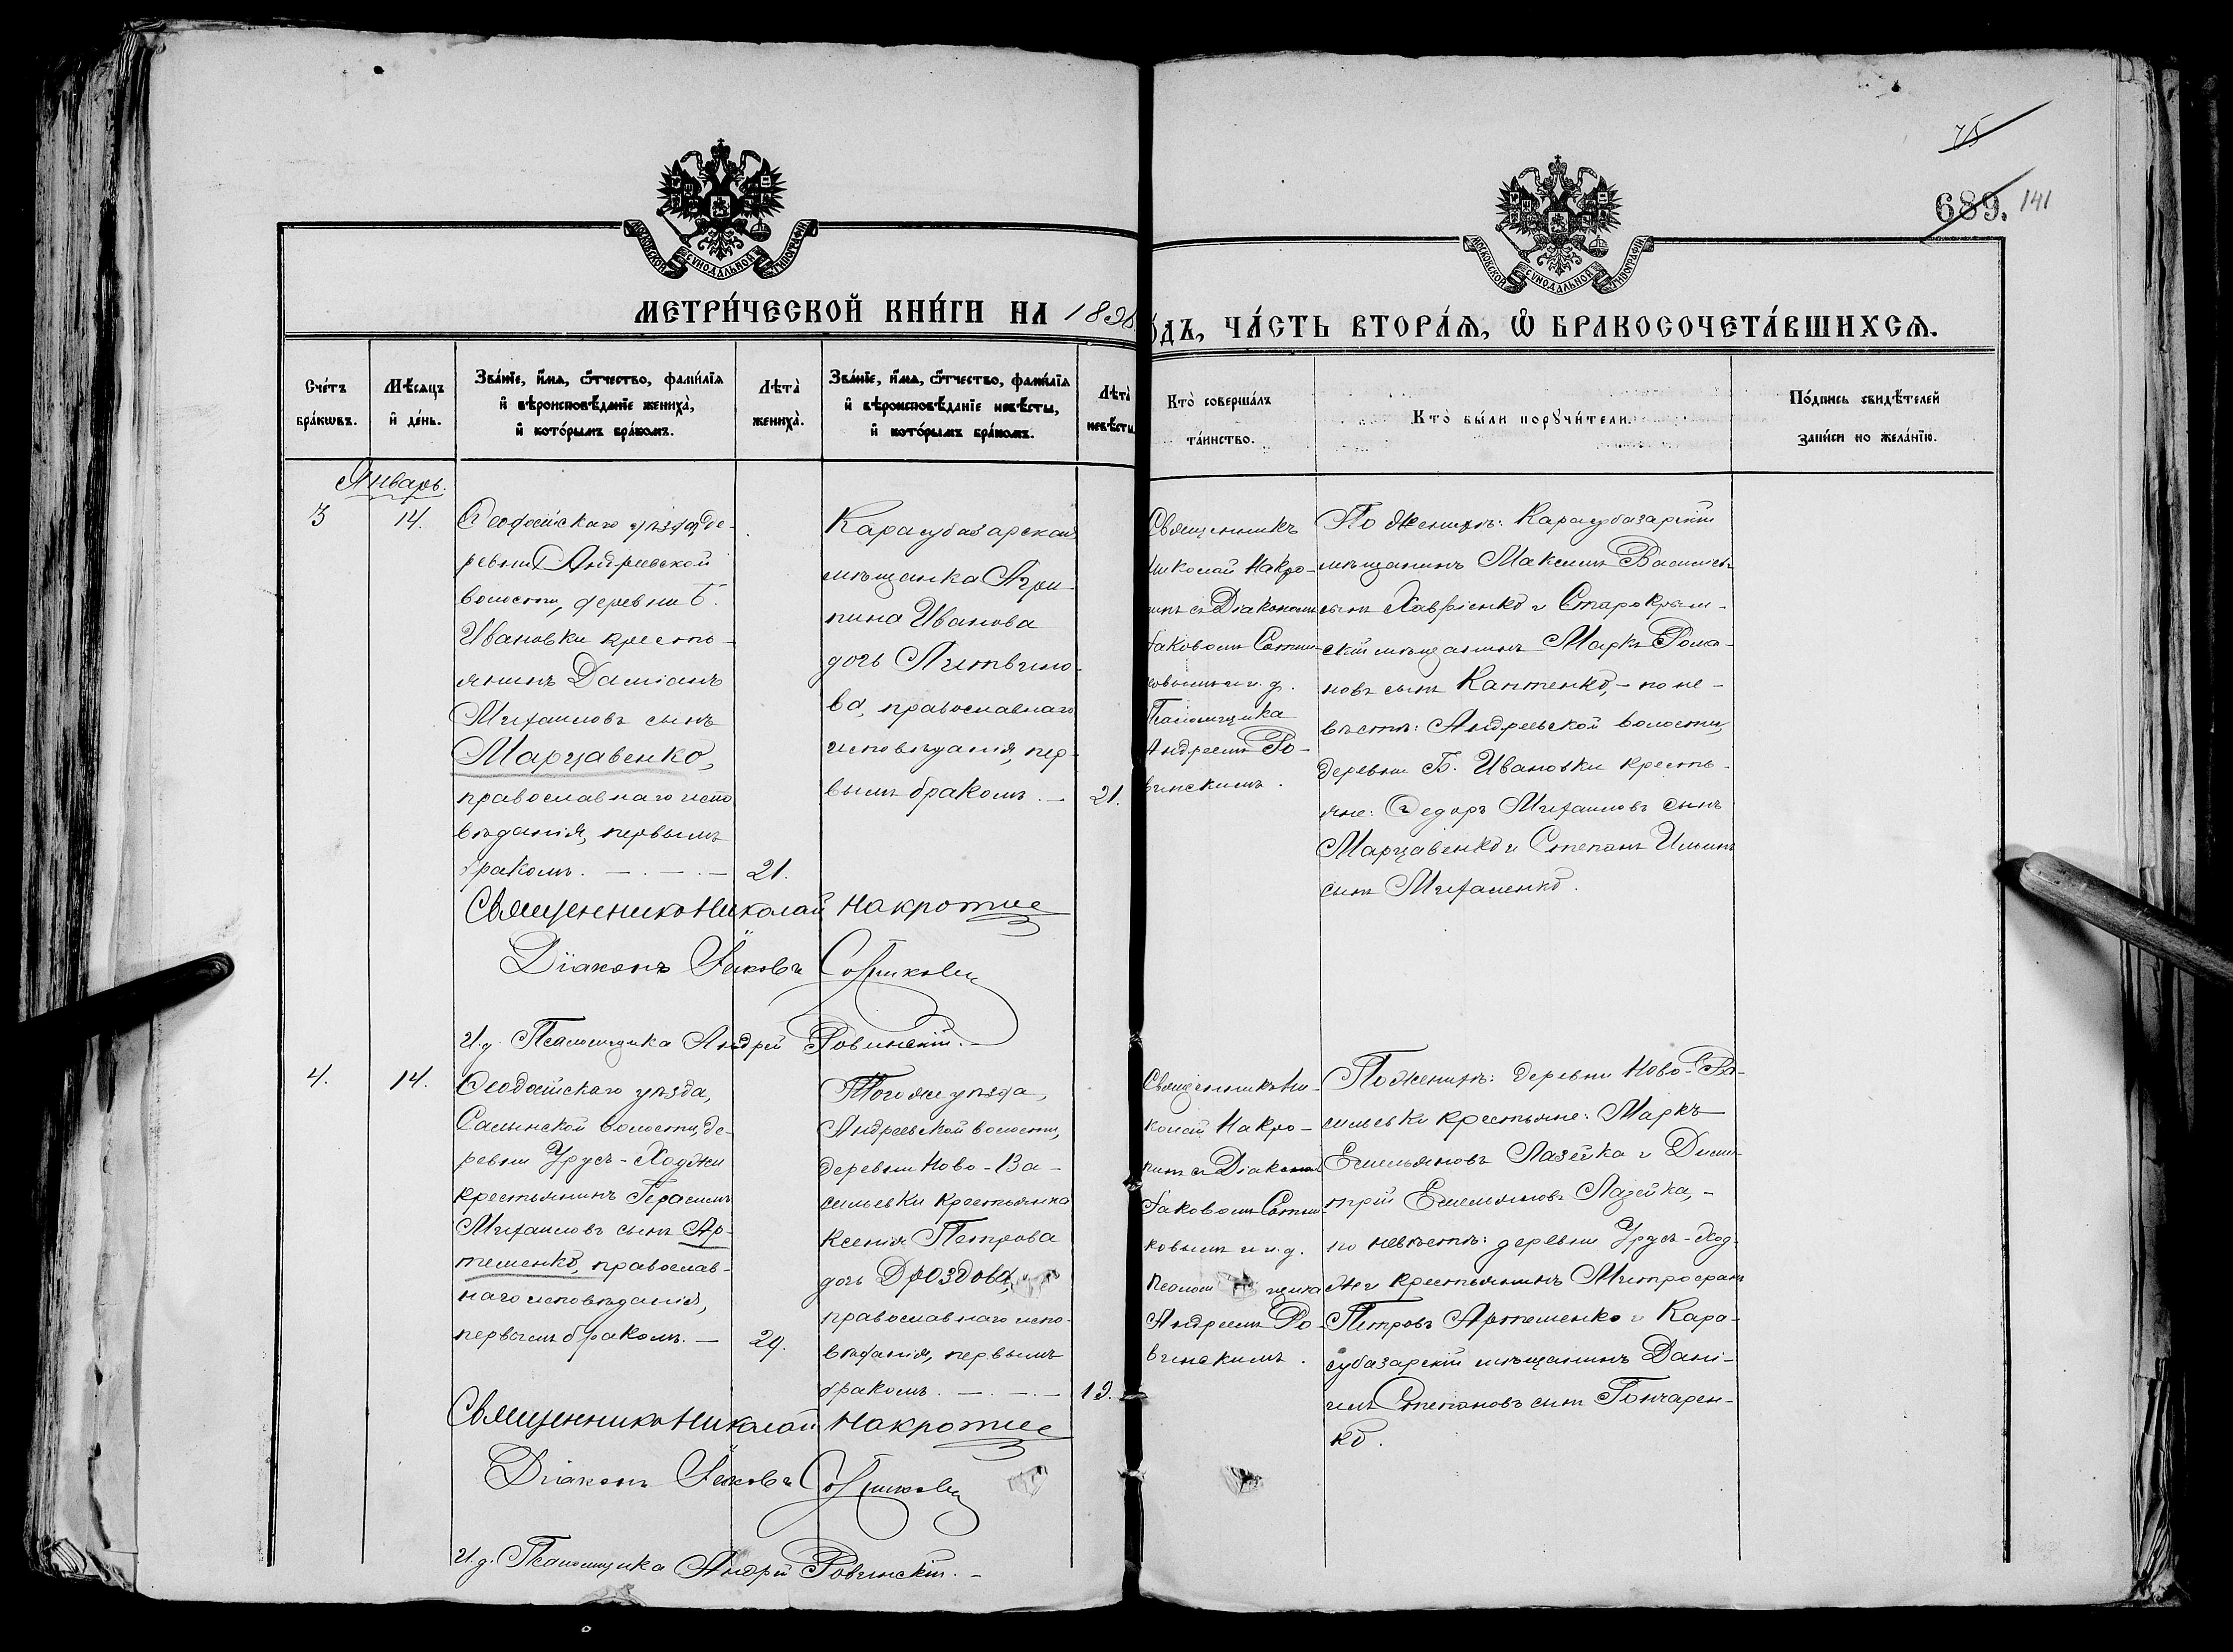 75
689. 141
МОСКОВСКОЙ СѴНОДАЛЬНОЙ ТИПОГРАФІИ
МОСКОВСКОЙ СѴНОДАЛЬНОЙ ТИПОГРАФІИ
МЕТРИ́ЧЕСКОЙ КНИ́ГИ НА 1898
ОДЪ, ЧА́СТЬ ВТОРА́Ѧ, Ѡ БРАКОСОЧЕТА́ВШИХСѦ.
Сче́тъ
бра́кѡвъ.
Мѣ́сѧцъ
и҆ де́нь.
Зва́нїе, и҆́мѧ, ѻ҆́тчество, фами́лїѧ
и҆ вѣроисповѣ́данїе жениха̀,
и҆ кото́рымъ бра́комъ.
Лѣта̀
жениха̀.
Зва́нїе, и҆́мѧ, ѻ҆́тчество, фами́лїѧ
и҆ вѣроисповѣ́данїе невѣ́сты,
и҆ кото́рымъ бра́комъ.
Лѣта̀
невѣ́сты
Кто̀ соверша́лъ
та́инство.
Кто̀ бы́ли порꙋчи́тели.
По́дпись свидѣ́телей
за́писи по жела́нїю.
Январь.
3
14.
Ѳеодосійскаго уѣзда, де-
ревни Андреевской
волости, деревни Б.
Ивановки кресть-
янинъ Даміанъ
Михаиловъ сынъ
Марцавенко,
православнаго испо
вѣданія, первымъ
бракомъ. — . — . —
21.
Карасубазарская
мѣщанка Агри-
пина Иванова
дочь Литвино-
ва, православнаго
исповѣданія, пер-
вымъ бракомъ. —
21.
Священникъ
Николай Накро-
Діакономъ
Іаковомъ Сотни-
ковымъ и и. д.
Псаломщика
Андреемъ Ро-
винскимъ.
По женихѣ: Карасубазарскій
мѣщанинъ Максимъ Васильевъ
сынъ Хавріенко и Старокрым-
скій мѣщанинъ Маркъ Рома-
новъ сынъ Каптенко, - по не-
вѣстѣ: Андреевской волости,
деревни Б. Ивановки кресть-
яне: Ѳедоръ Михаиловъ сынъ
Марцавенко и Степанъ Ильинъ
сынъ Михаленко.
Священникъ Николай Накропинъ
Діаконъ Іаковъ Сотниковъ
И. д. Псаломщика Андрей Ровинскій. -
4.
14.
Ѳеодосійскаго уѣзда,
Салынской волости, де-
ревни Урусъ-Ходжи
крестьянинъ Герасимъ
Михаиловъ сынъ Ар-
тешенко, православ-
наго исповѣданія,
первымъ бракомъ. —
29.
Того же уѣзда,
Андреевской волости,
деревни Ново-Ва-
сильевки крестьянка
Ксенія Петрова
дочь Дроздова,
православнаго испо-
вѣданія, первымъ
бракомъ. — . — . —
19.
Священникъ Ни-
колай Накро-
пинъ съ Діакономъ
Іаковомъ Сотни-
ковымъ и и. д.
Псаломщика
Андреемъ Ро-
винскимъ.
По женихѣ: деревни Ново-Ва-
сильевки крестьяне: Маркъ
Емельяновъ Лазейка и Дими-
трій Емельяновъ Лазейка, -
по невѣстѣ: деревни Урусъ-Ход-
жи крестьянинъ Митрофанъ
Петровъ Артешенко и Кара-
субазарскій мѣщанинъ Дані-
илъ Степановъ сынъ Гончарен-
ко.
Священникъ Николай Накропинъ
Діаконъ Іаковъ Сотниковъ
И. д. Псаломщика Андрей Ровинскій. -